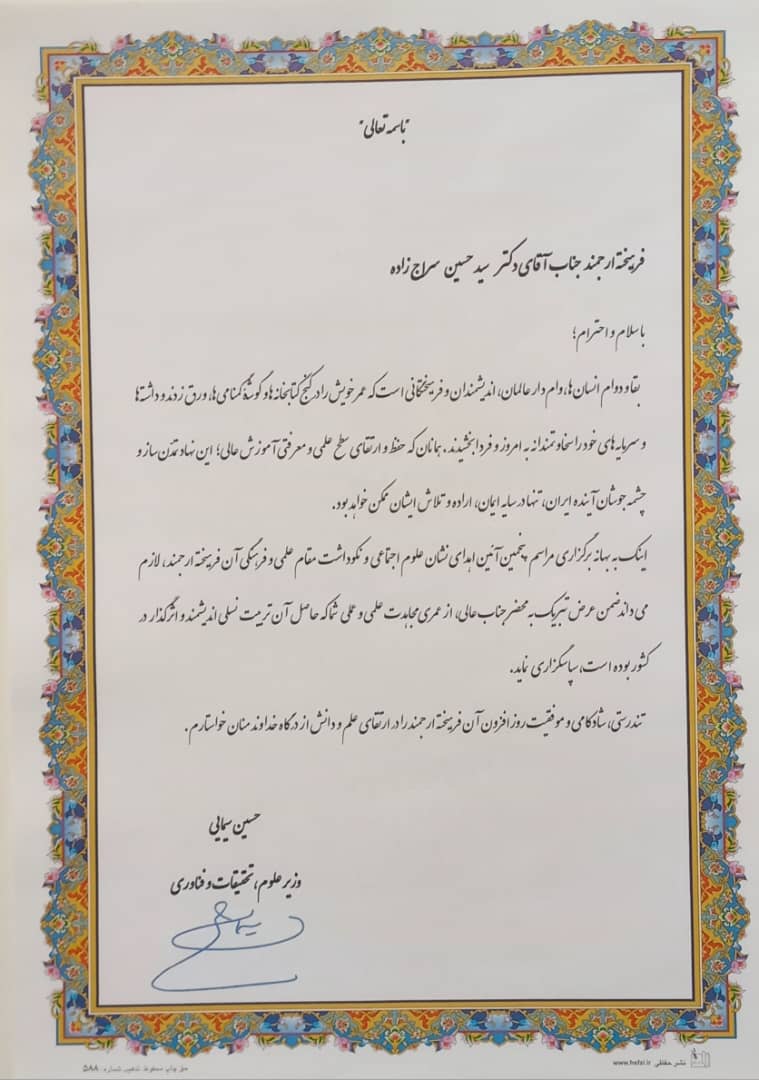 باسمه تعالی
فرهیخته ارجمند جناب آقای دکتر سید حسین سراج زاده
با سلام و احترام؛
بقا و دوام انسان‌ها، وام دار عالمان، اندیشمندان و فرهیختگانی است که عمر خویش را در کنج کتابخانه‌ها و گوشهٔ گمنامی‌ها، ورق زدند و داشته‌ها
و سرمایه‌های خود را سخاوتمندانه به امروز و فردا بخشیدند. همانان که حفظ و ارتقای سطح علمی و معرفتی آموزش عالی؛ این نهاد تمدن ساز و
چشمه جوشان آینده ایران، تنها در سایه ایمان، اراده و تلاش ایشان ممکن خواهد بود.
اینک به بهانه برگزاری مراسم پنجمین آئین اهدای نشان علوم اجتماعی و نکوداشت مقام علمی و فرهنگی آن فرهیخته ارجمند، لازم
می داند ضمن عرض تبریک به محضر جناب عالی، از عمری مجاهدت علمی و عملی شما که حاصل آن تربیت نسلی اندیشمند و اثرگذار در
کشور بوده است، سپاسگزاری نماید.
تندرستی، شادکامی و موفقیت روز افزون آن فرهیخته ارجمند را در ارتقای علم و دانش از درگاه خداوند منان خواستارم.
حسین سیمایی
وزیر علوم، تحقیقات و فناوری
حق چاپ محفوظ شماره: ۵۸۸
نشر حفظی www.hefzi.ir